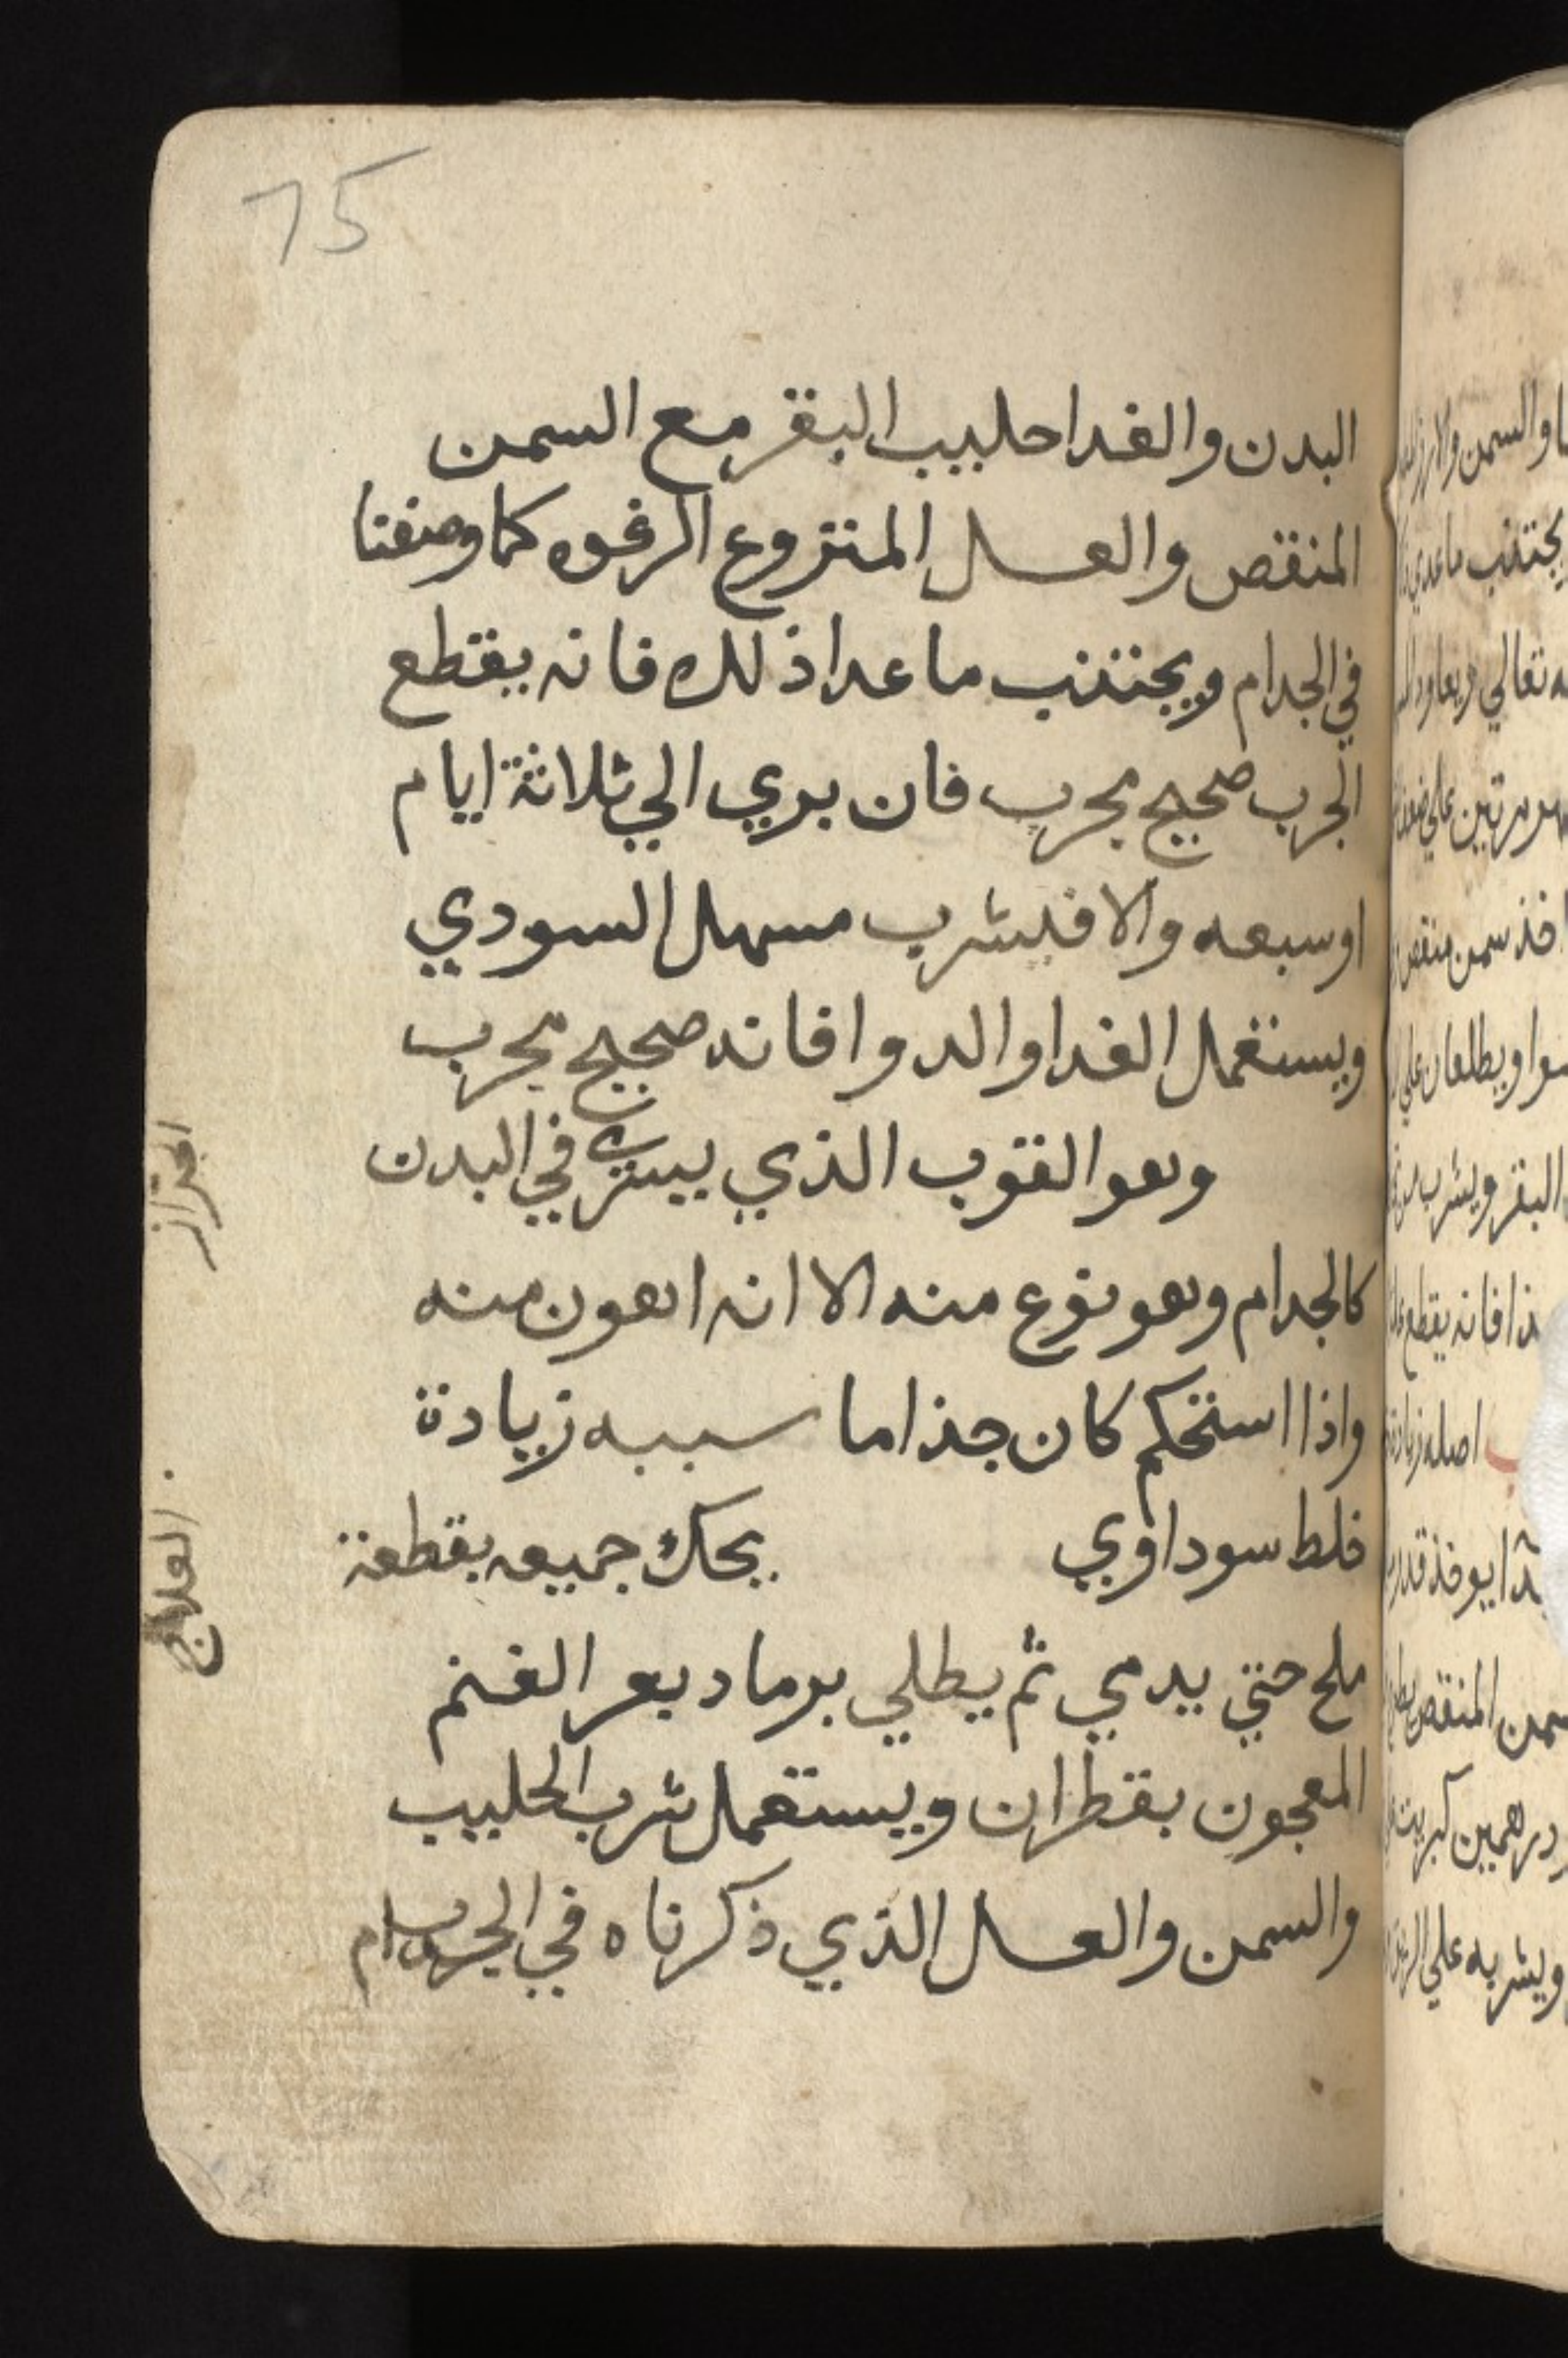 75
البدن والغدا حليب البقر مع السمن
المنقص والعسل المنتزوع الرغوه كما وصفنا
في الجدام ويجتنب ما عدا ذلك فانه يقطع
الجرب صحيح مجرب فان بري الي ثلاثة ايام
او سبعه والا فليشرب مسهل السودي
ويستعمل الغدا والدوا فانه صحيح مجرب
وهو القوب الذي يسري في البدن
كالجدام وهو نوع منه الا انه اهون منه
واذا استحكم كان جذاما سببه زيادة
خلط سوداوي يحك جميعه بقطعة
ملح حتي يدمي ثم يطلي برماد بعر الغنم
المعجون بقطران ويستعمل شرب الحليب
والسمن والعسل الذي ذكرناه في
العلاج